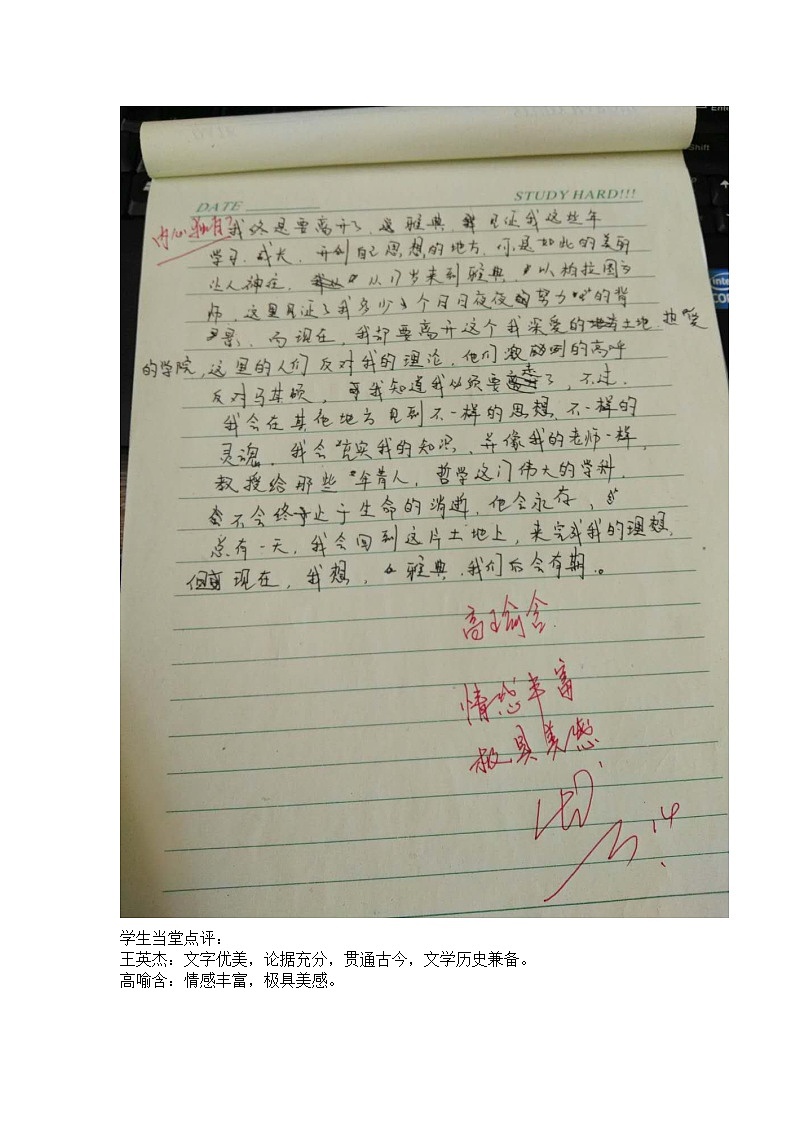 DATE STUDY HARD!!!
内心独白
我终是要离开了,雅典,见证我这些年
学习、成长、开创自己思想的地方,你是如此的美丽
让人神往,从17岁来到雅典,以柏拉图为
师,这里见证了我多少个日日夜夜的努力的背
景,而现在,我却要离开这个我深爱的土地,热爱
的学院,这里的人们反对我的理论,他们的高呼
反对马其顿,我知道我必须要了,不过,
我会在其他地方见到不一样的思想,不一样的
灵魂,我会充实我的知识,并像我的老师一样,
教授给那些年青人,哲学这门伟大的学科,
不会终止于生命的消逝,他会永存,
总有一天,我会回到这片土地上,来完成我的理想,
但现在,我想,雅典,我们后会有期。
高瑜含
情感丰富
极具美感
学生当堂点评:
王英杰:文字优美,论据充分,贯通古今,文学历史兼备。
高喻含:情感丰富,极具美感。